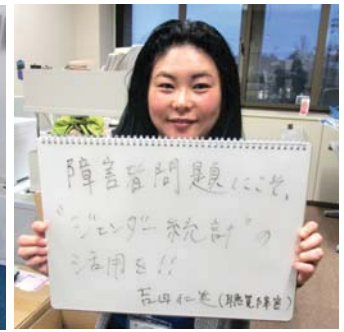 障害者問題にこそ、
"ジェンダー統計"の
活用を!!
吉田仁美(聴覚障害)